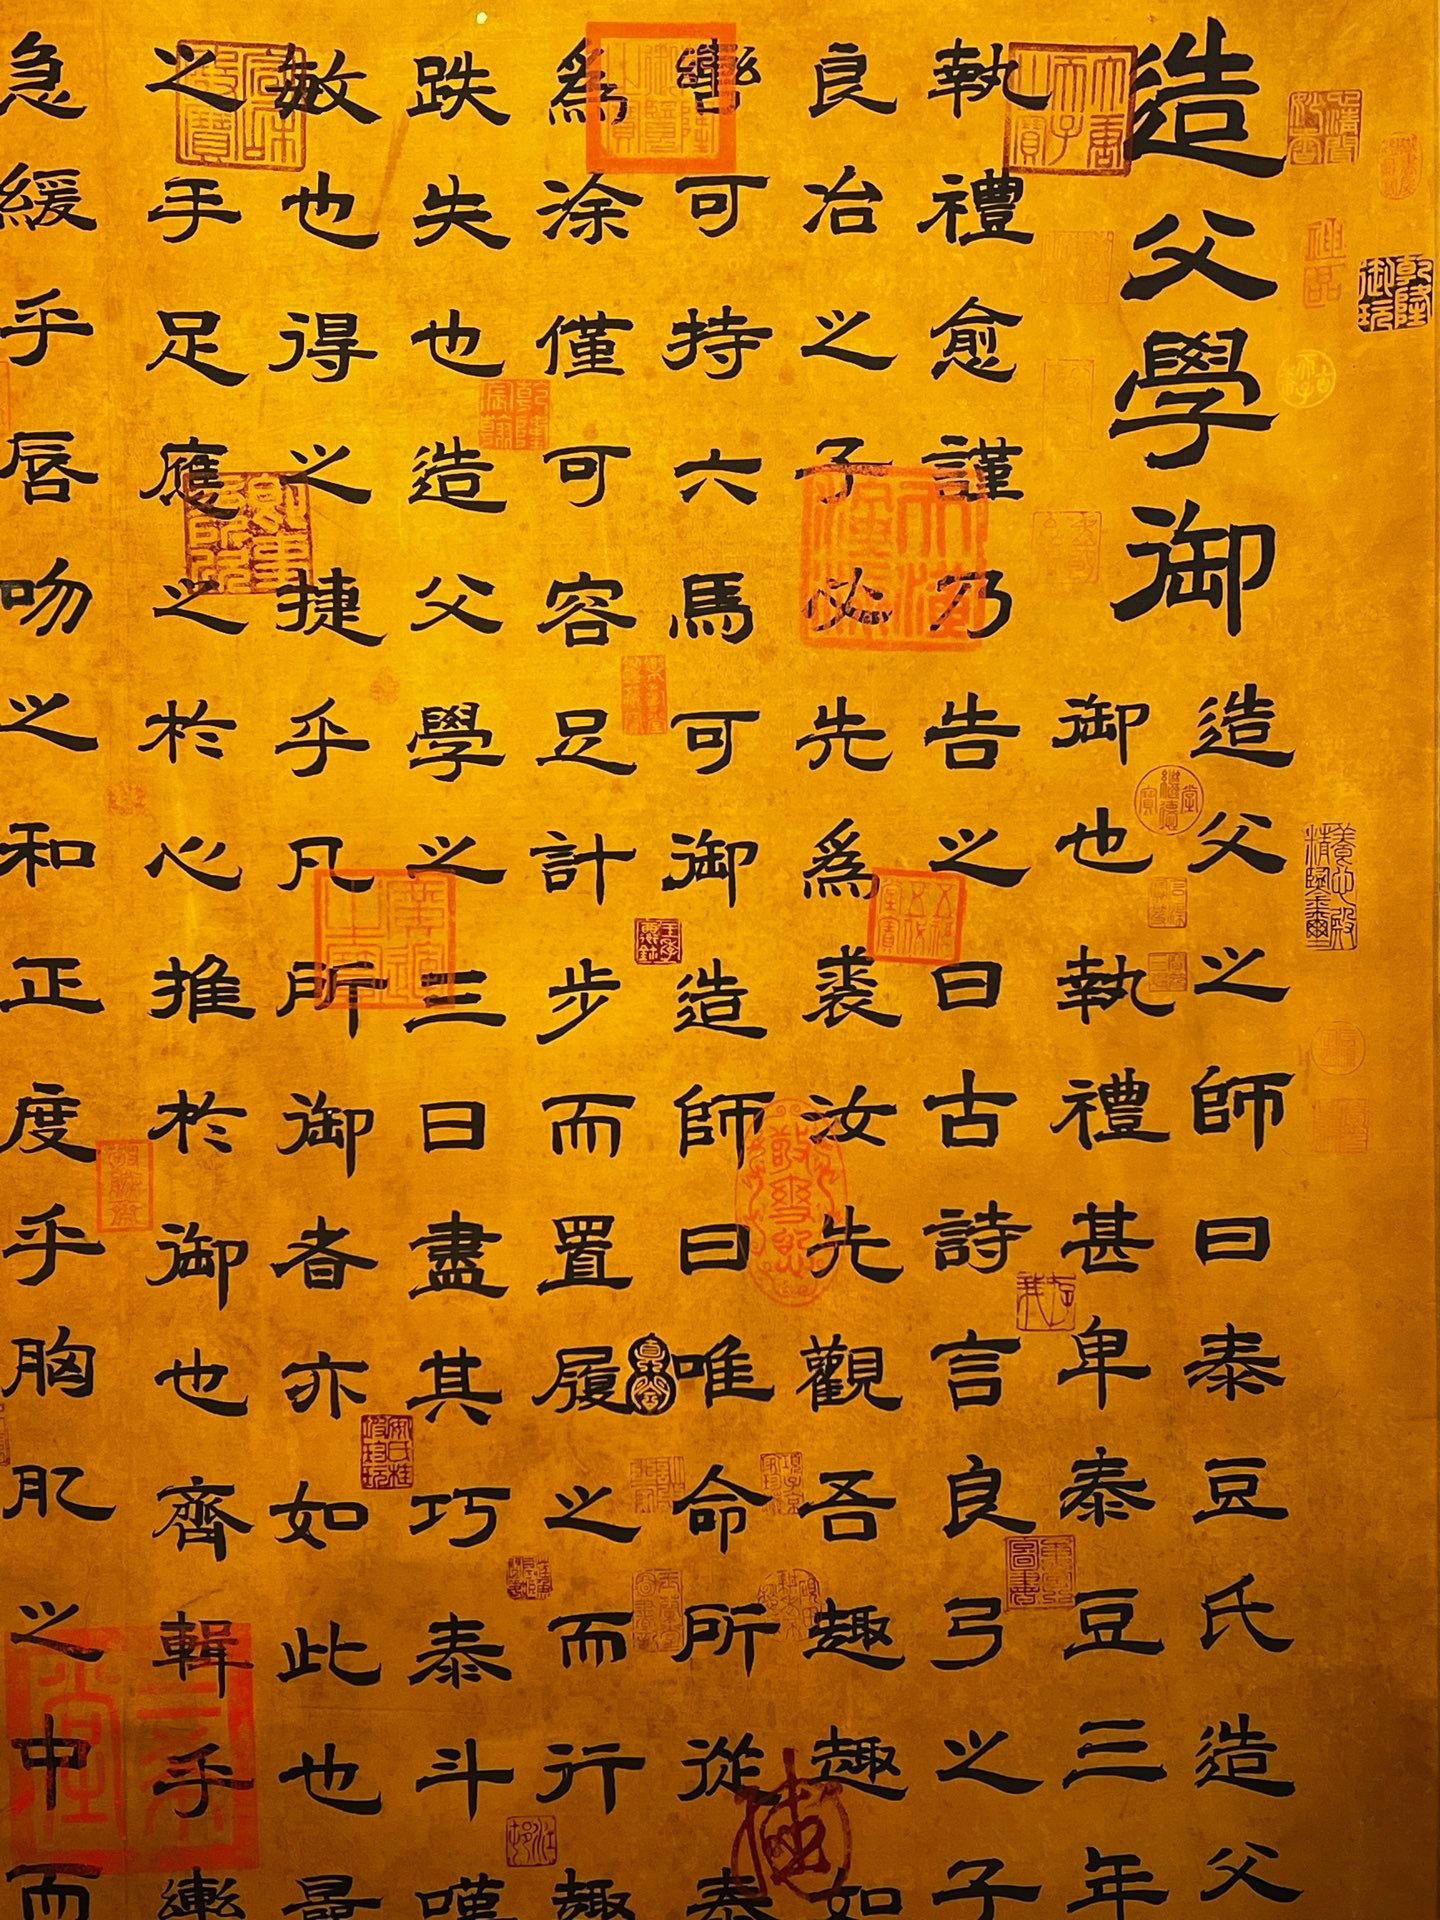 造父學御
造父之師曰泰豆氏造父
御也執禮甚卑泰豆三年
執禮愈謹乃告之曰古詩言良弓之子
良冶之子必先爲裘汝先觀吾趣趣如
轡可持六馬可御造師曰唯命所從泰
爲涂僅可容足計步而置履之而行趣
跌失也造父學之三日盡其巧泰斗嘆
敏也得之捷乎凡所御者亦如此也曩
之手足應之於心推於御也齊輯乎轡
急緩乎唇吻之和正度乎胸肊之中而
乾隆御玩
神品
養心殿精鑒璽
乾隆宸翰